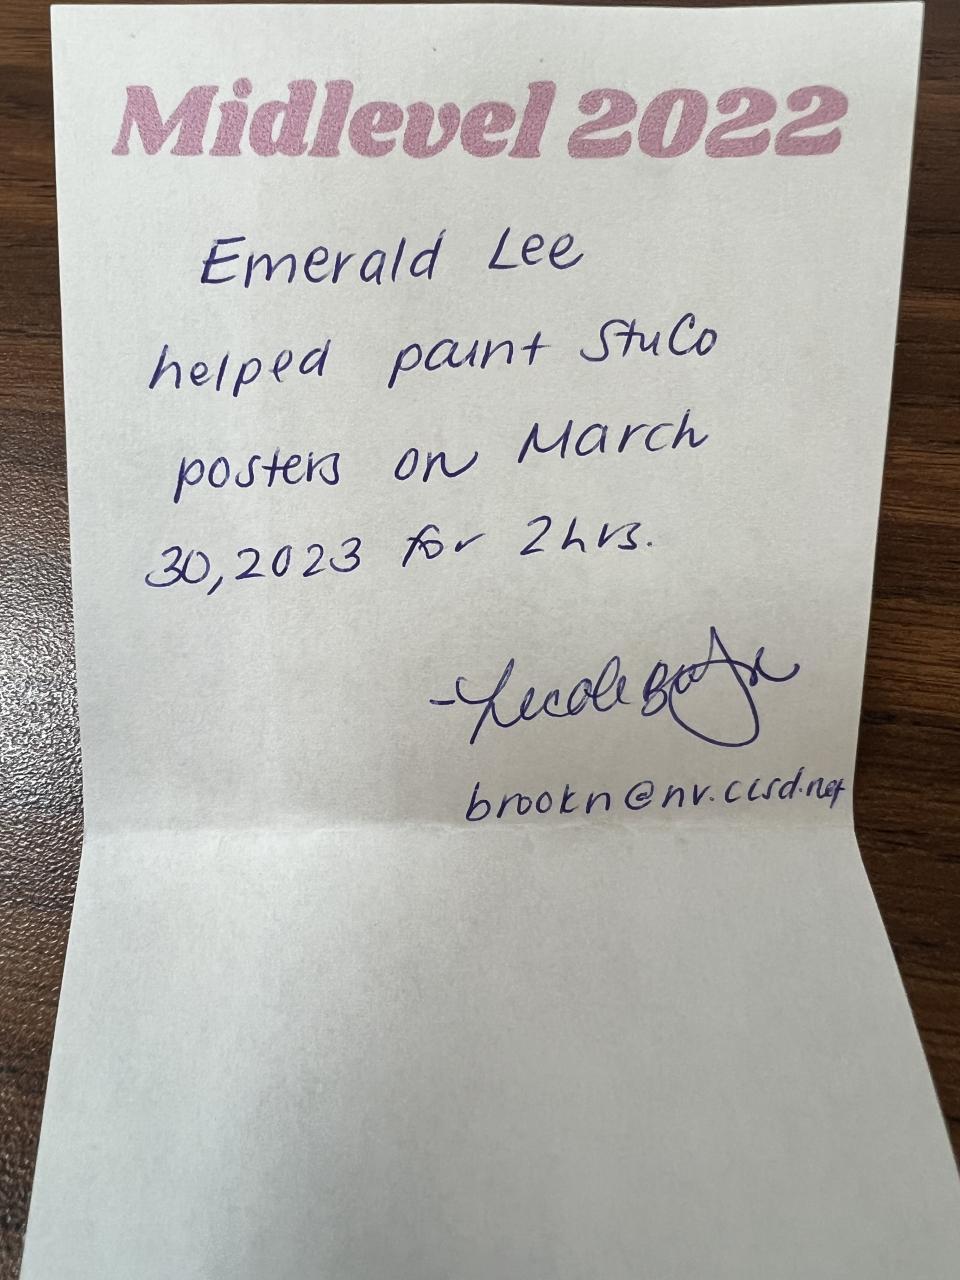 Midlevel 2022
Emerald Lee
helped paint StuCo
posters on March
30, 2023 for 2 hrs.
brookn@nv.ccsd.net